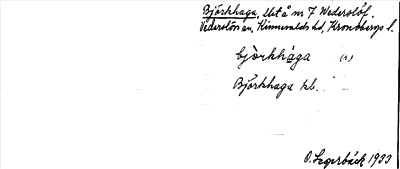 Björkhaga, Utå nr 7 Wederslöf.
Vederslövs sn, Kinnevalds hd, Kronobergs l.
bjòrkhága (n)
Björkhaga hb.
O. Segerbäck 1933